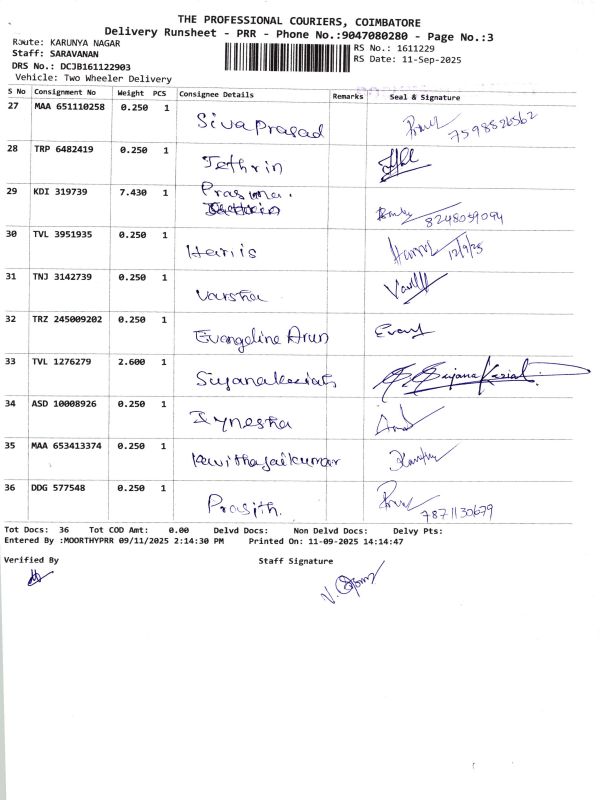 THE PROFESSIONAL COURIERS, COIMBATORE
Delivery Runsheet - PRR - Phone No.:9047080280 - Page No.:3
Route: KARUNYA NAGAR
RS No.: 1611229
Staff: SARAVANAN
RS Date: 11-Sep-2025
DRS No.: DCJB161122903
Vehicle: Two Wheeler Delivery
S No Consignment No Weight PCS Consignee Details Remarks Seal & Signature
27 MAA 651110258 0.250 1 Sivaprasad 7598526562
28 TRP 6482419 0.250 1 Jethrin
29 KDI 319739 7.430 1 Prasima. 8248059094
30 TVL 3951935 0.250 1 Harris 12/9/25
31 TNJ 3142739 0.250 1 Varsha
32 TRZ 245009202 0.250 1 Evangeline Arun
33 TVL 1276279 2.600 1
34 ASD 10008926 0.250 1 Iynesha
35 MAA 653413374 0.250 1 Kavithajaikumar
36 DDG 577548 0.250 1 Prasith. 7871130679
Tot Docs: 36 Tot COD Amt: 0.00 Delvd Docs: Non Delvd Docs: Delvy Pts:
Entered By :MOORTHYPRR 09/11/2025 2:14:30 PM Printed On: 11-09-2025 14:14:47
Verified By Staff Signature